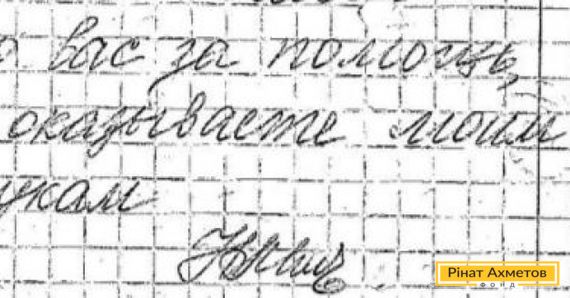 вас за помощь,
оказываете моим
Рінат Ахметов
ФОНД